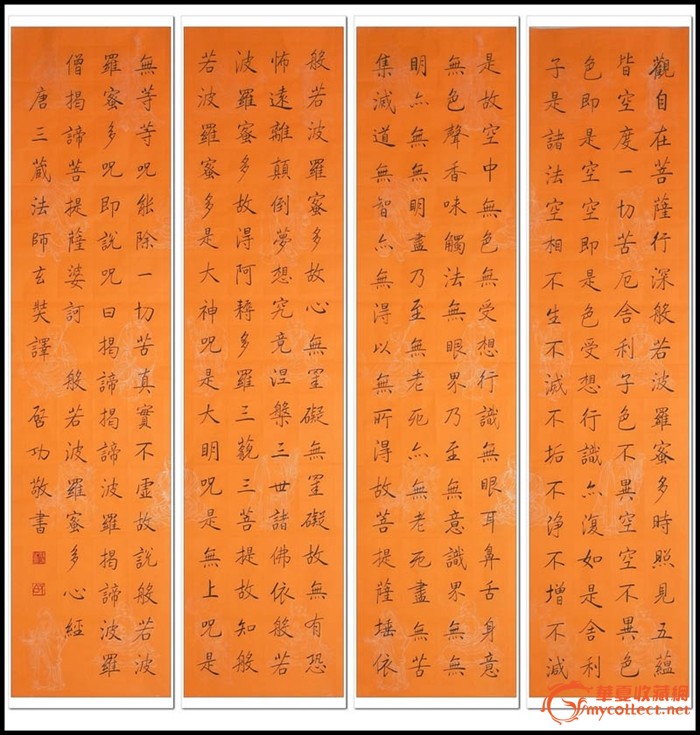 觀自在菩薩行深般若波羅蜜多時照見五蘊
皆空度一切苦厄舍利子色不異空空不異色
色即是空空即是色受想行識亦復如是舍利
子是諸法空相不生不滅不垢不淨不增不減
是故空中無色無受想行識無眼耳鼻舌身意
無色聲香味觸法無眼界乃至無意識界無無
明亦無無明盡乃至無老死亦無老死盡無苦
集滅道無智亦無得以無所得故菩提薩埵依
般若波羅蜜多故心無罣礙無罣礙故無有恐
怖遠離顛倒夢想究竟涅槃三世諸佛依般若
波羅蜜多故得阿耨多羅三藐三菩提故知般
若波羅蜜多是大神呪是大明呪是無上呪是
無等等呪能除一切苦真實不虛故說般若波
羅蜜多呪即說呪曰揭諦揭諦波羅揭諦波羅
僧揭諦菩提薩婆訶 般若波羅蜜多心經
唐三藏法師玄奘譯 啓功敬書
華夏收藏網
mycollect.net